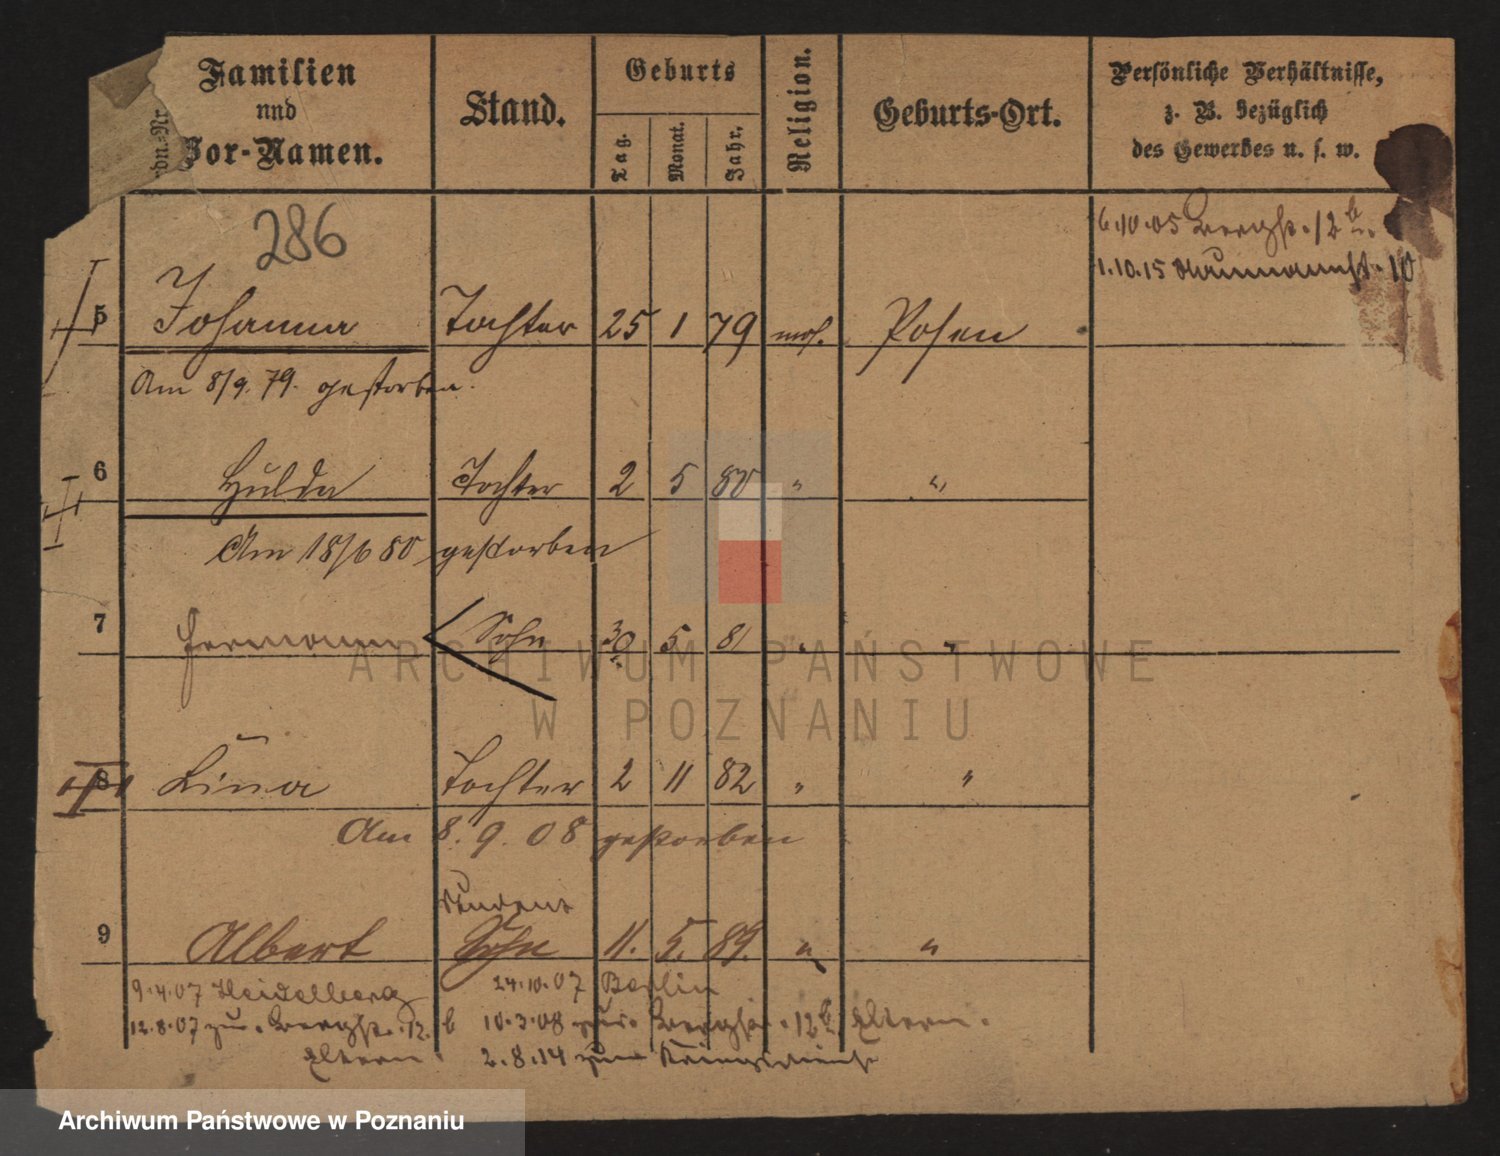 Familien
und
Vor-Namen.
Stand.
Geburts
Tag.
Monat.
Jahr.
Religion.
Geburts-Ort.
Persönliche Verhältnisse,
z. B. bezüglich
des Gewerbes u. s. w.
dn.-Nr
286
6.10.05 Bergstr. 12 b.
1.10.15 Naumannstr. 10
5 Johanna Tochter 25 1 79 mos. Posen
Am 8/9. 79. gestorben.
6 Hulda Tochter 2 5 80 " "
Am 18/6 80 gestorben
7 Hermann Sohn 30 5 81 " "
ARCHIWUM PAŃSTWOWE
W POZNANIU
8 Lina Tochter 2 11 82 " "
Am 8. 9. 08 gestorben
Student
9 Albert Sohn 11. 5. 89. " "
9.4.07 Heidelberg 24.10.07 Berlin
12.8.07 zur. Bergstr. 12. b 10.3.08 zur. Bergstr. 12 b Eltern.
Eltern 2.8.14 zum Kriegsdienst
Archiwum Państwowe w Poznaniu